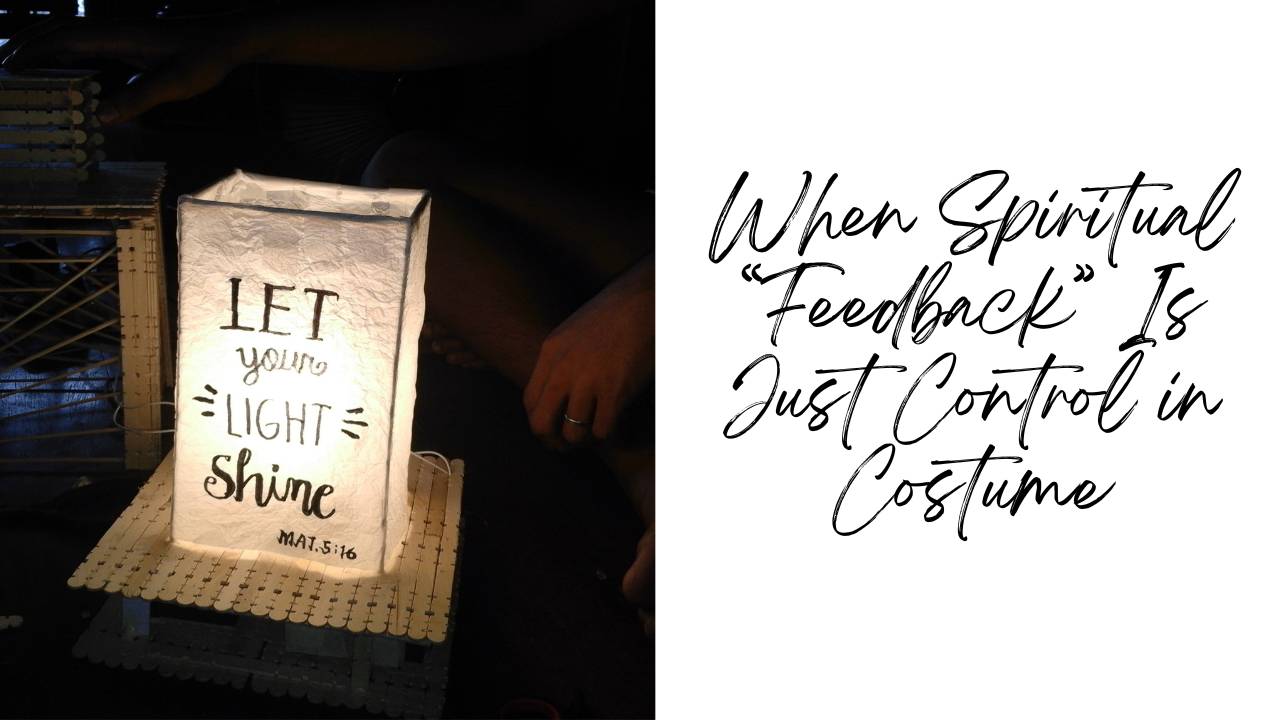 LET
your
LIGHT
Shine
MAT. 5:16
When Spiritual
“Feedback” Is
Just Control in
Costume